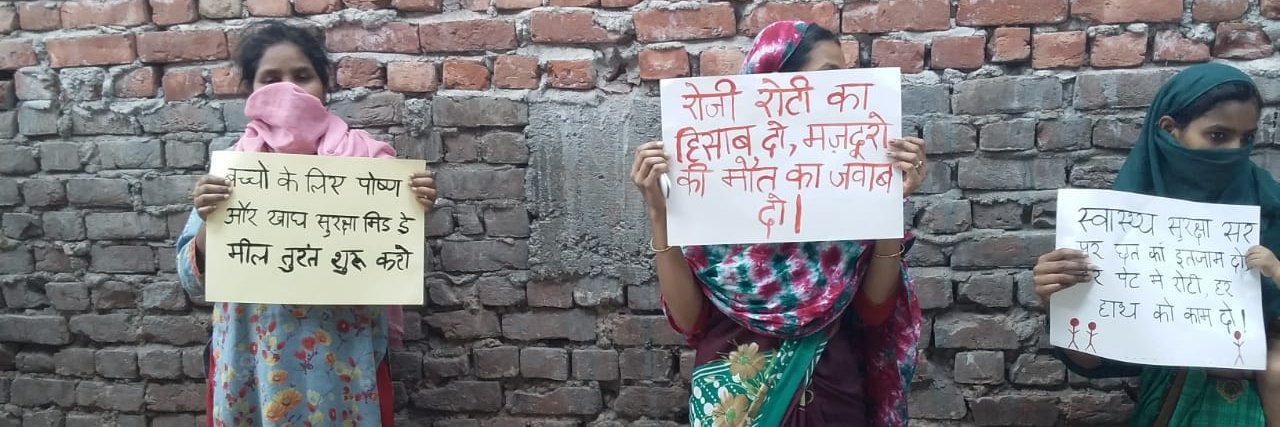 बच्चो के लिए पोष्ण
और खाघ सुरक्षा मिड डे
मील तुरंत शुरू करो
रोजी रोटी का
हिसाब दो, मज़दूरो
की मौत का जवाब
दो।
स्वास्थ्य सुरक्षा सर
पर छत का इंतजाम दो
पेट मे रोटी, हर
हाथ को काम दो!